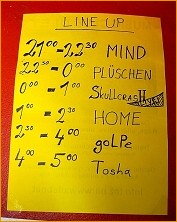 LINE UP
21⁰⁰-22³⁰ MIND
22³⁰ - 0⁰⁰ PLÜSCHEN
0⁰⁰ - 1⁰⁰
1⁰⁰ - 2³⁰ HOME
2³⁰ - 4⁰⁰ goLPe
4⁰⁰ - 5⁰⁰ Tosha